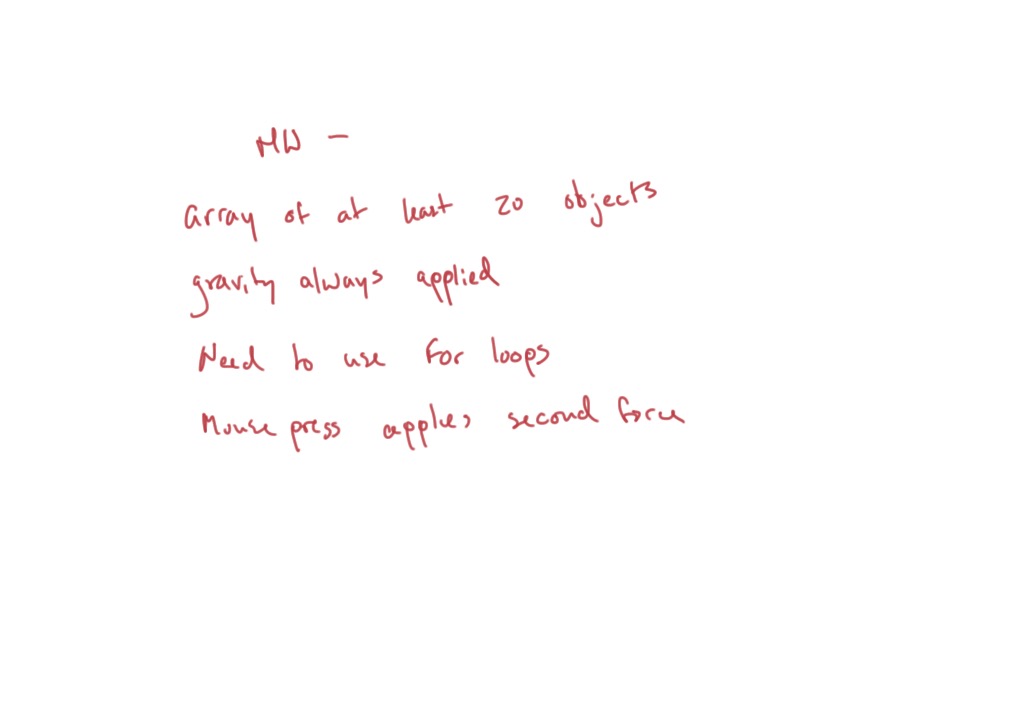 HW -
array of at least 20 objects
gravity always applied
Need to use for loops
Mouse press applies second force